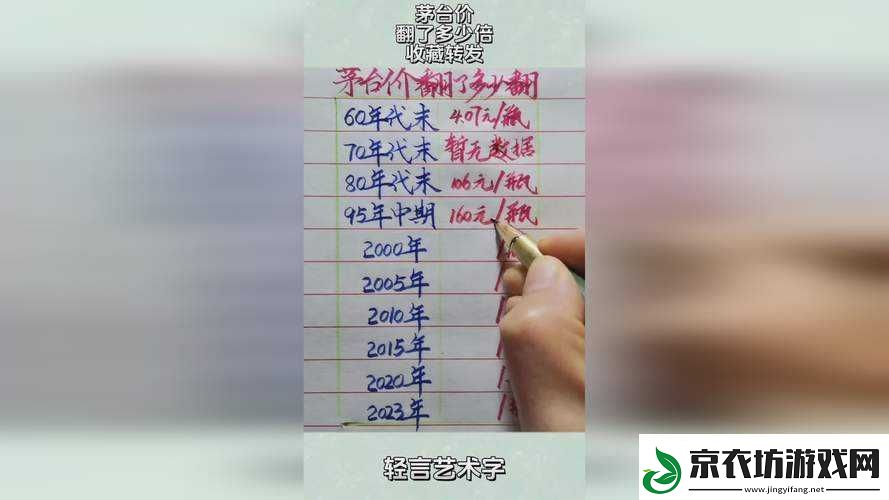 茅台价
翻了多少倍
收藏转发
茅台价翻了多少翻
60年代末 4.07元/瓶
70年代末 暂无数据
80年代末 106元/瓶
95年中期 160元/瓶
2000年
2005年
2010年
2015年
2020年
2023年
轻言艺术字
京衣坊游戏网
www.jingyifang.net